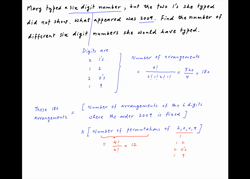 Mary typed a six digit number, but the two 1's she typed
did not show. What appeared was 2009. Find the number of
different six digit numbers she would have typed.
Digits are
2 1's
1 2
2 0's
1 9
Number of arrangements
= 6! / 2! 1! 2! 1! = 720 / 4 = 180
These 180 arrangements = [ Number of arrangements of the 6 digits
where the order 2009 is fixed ]
× [ Number of permutations of 2,0,0,9 ]
= 4! / 2! = 12
1 2
2 0's
1 9